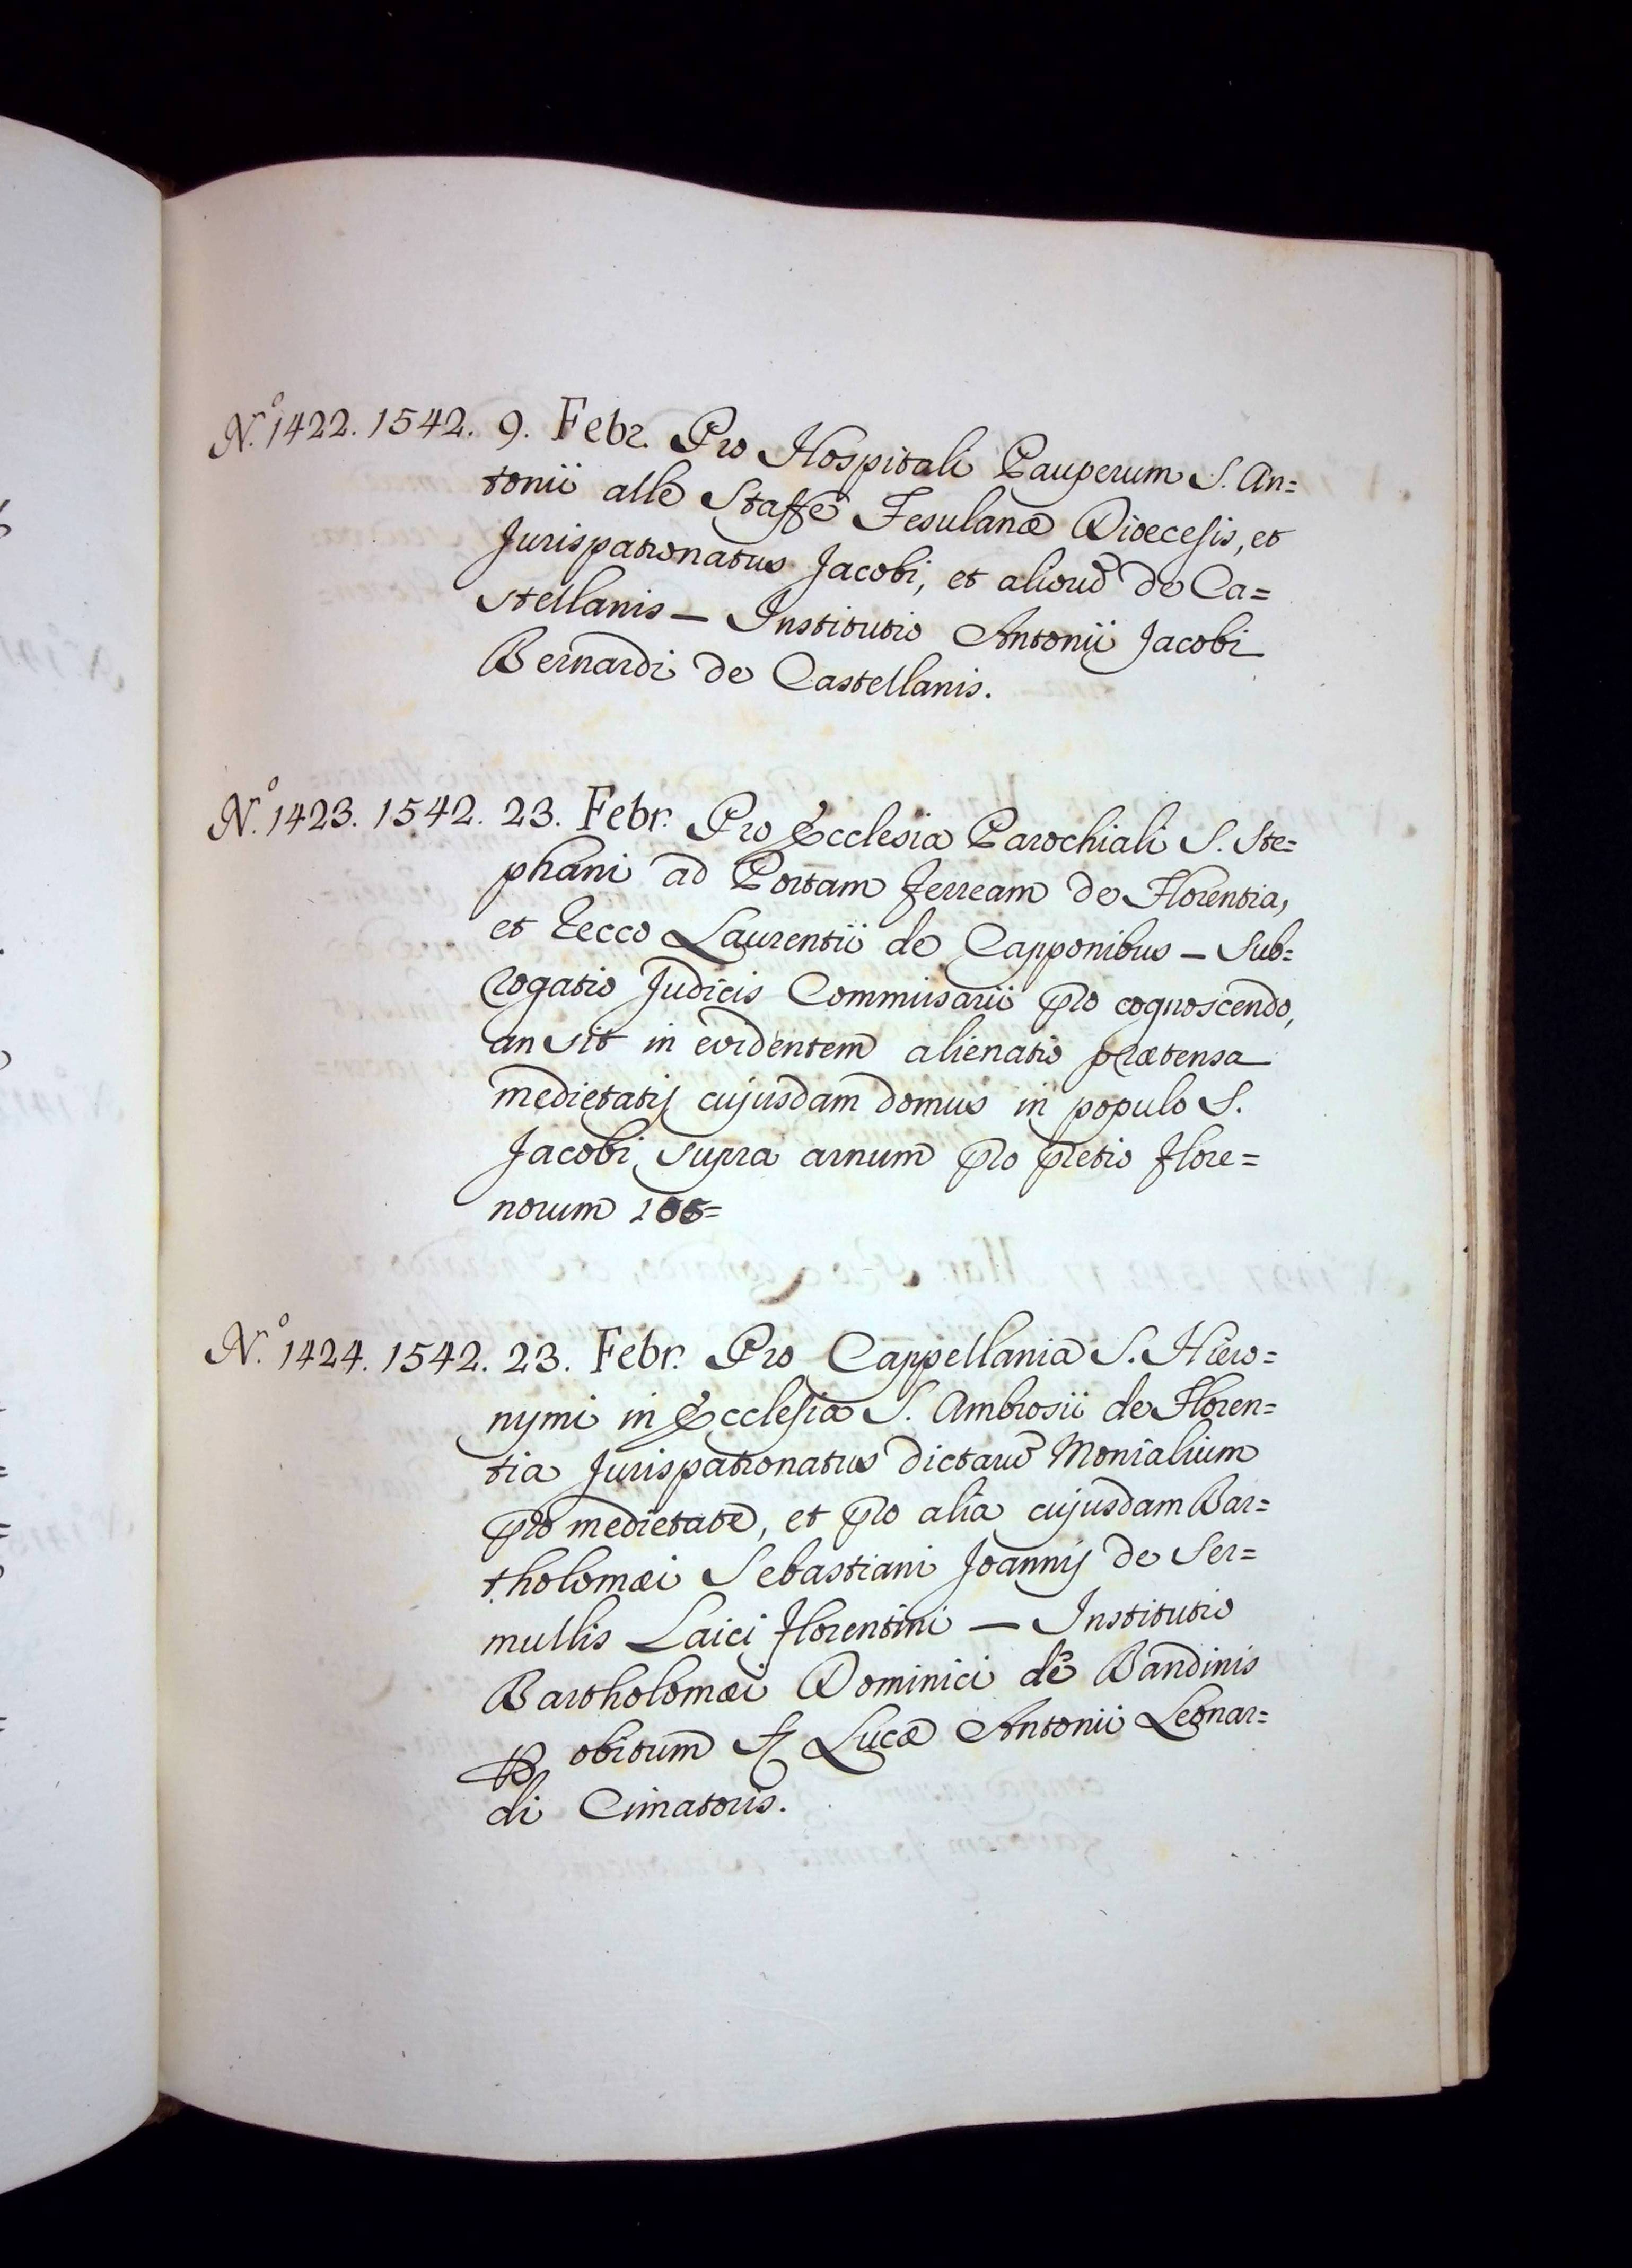 N.º 1422. 1542. 9. Febr. Pro Hospitali Pauperum S. An=
tonii alle Staffe Fesulanæ Diœcesis, et
Jurispatronatus Jacobi, et alioru̅ de Ca=
stellanis — Institutio Antonii Jacobi
Bernardi de Castellanis.
N.º 1423. 1542. 23. Febr. Pro Ecclesia Parochiali S. Ste=
phani ad Portam ferream de Florentia,
et Cecco Laurentii de Capponibus — Sub=
rogatio Judicis Commissarii pro cognoscendo,
an sit in evidentem alienatio prætensa
medietatis cujusdam domus in populo S.
Jacobi supra arnum pro pretio flore=
norum
N.º 1424. 1542. 23. Febr. Pro Cappellania S. Hiero=
nymi in Ecclesia S. Ambrosii de Floren=
tia Jurispatronatus dictaru̅ Monialium
pro medietate, et pro alia cujusdam Bar=
tholomæi Sebastiani Joannis de Ser=
mullis Laici florentini — Institutio
Bartholomæi Dominici de Bandinis
obitum Lucæ Antonii Leonar=
di Cimatoris.